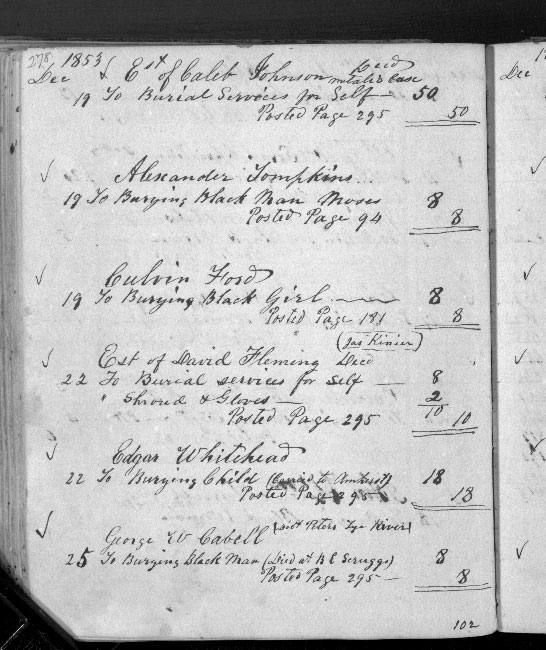 278 1853
Dec Est of Caleb Johnson Decd metalic case
19 To Burial Services for Self — 50
Posted Page 295 50
Alexander Tompkins
19 To Burying Black Man Moses 8
Posted Page 94 8
Culvin Ford
19 To Burying Black Girl — 8
Posted Page 181 8
(Jas Kinier)
Est of David Fleming Decd
22 To Burial services for Self — 8
" Shroud & Gloves — 2
10
Posted Page 295 10
Edgar Whitehead
22 To Burying Child (Carried to Amherst) 18
Posted Page 295 18
George W Cabell (
Peters Tye River)
25 To Burying Black Man (Died at B E Scruggs) 8
Posted Page 295 — 8
102
Dec